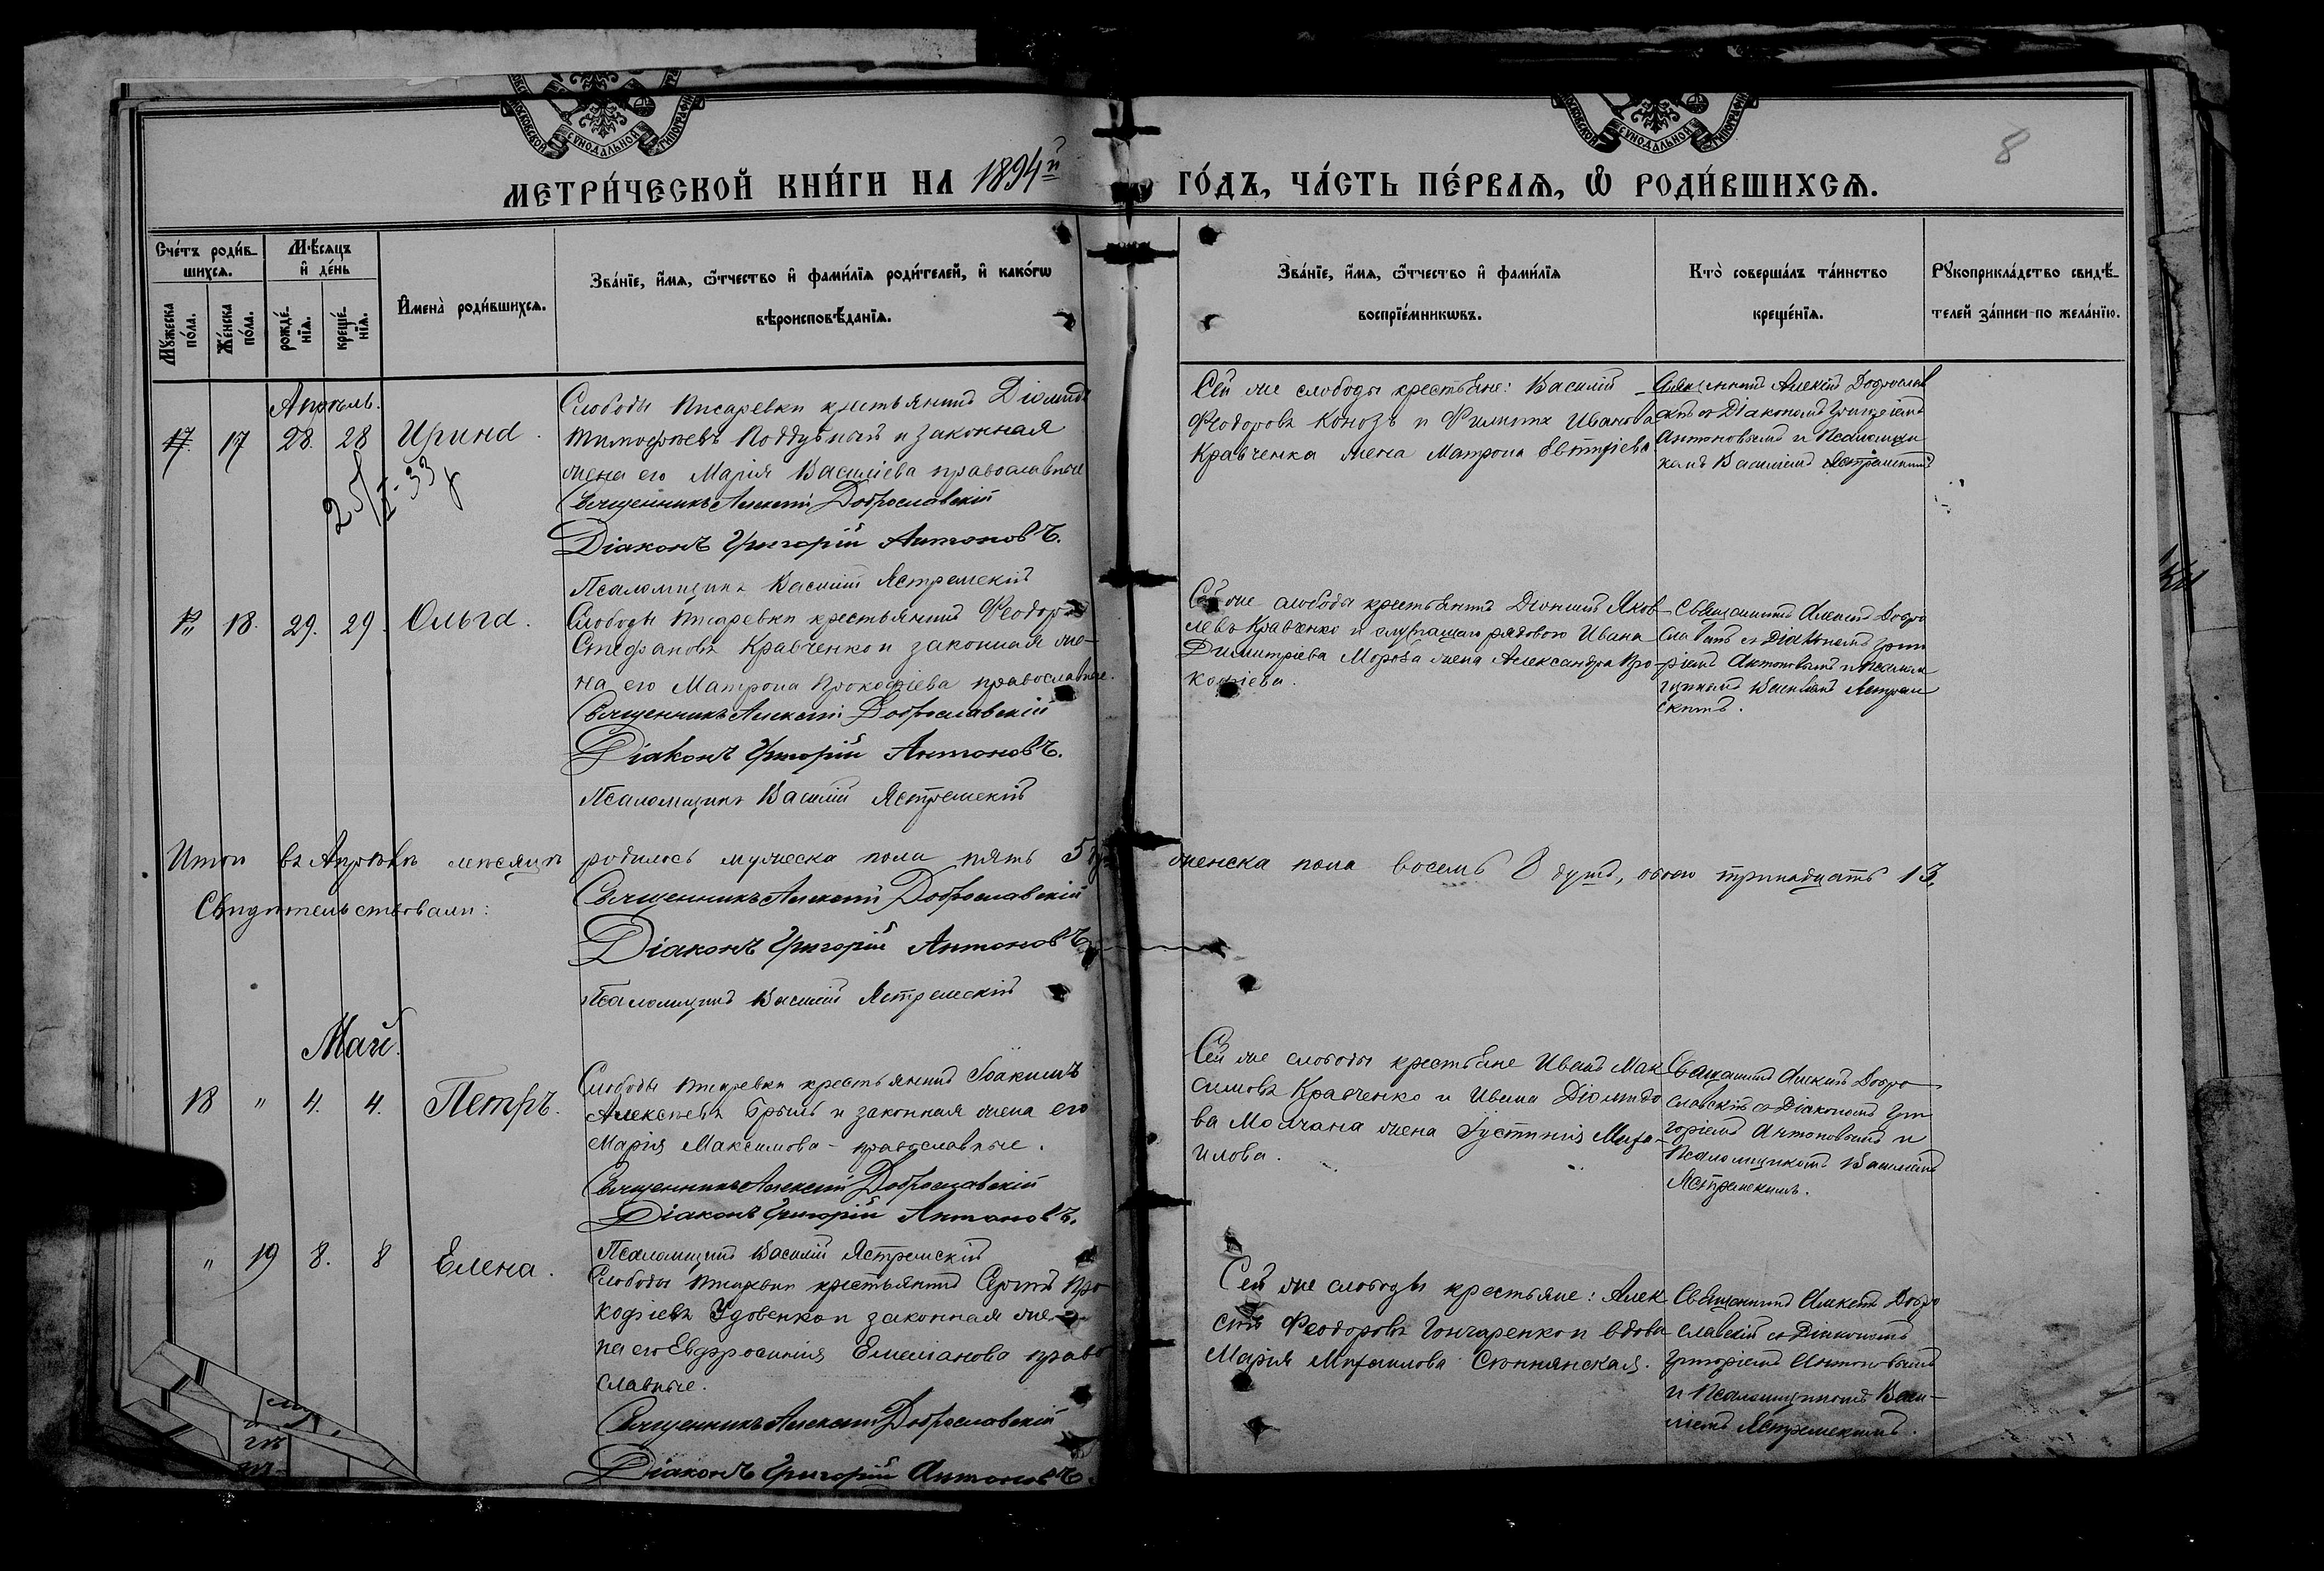 МОСКОВСКОЙ СѴНОДАЛЬНОЙ ТИПОГРАФІИ
МОСКОВСКОЙ СѴНОДАЛЬНОЙ ТИПОГРАФІИ
8
МЕТРИ́ЧЕСКОЙ КНИ́ГИ НА 1894й ГО́ДЪ, ЧА́СТЬ ПЕ́РВАѦ, Ѽ РОДИ́ВШИХСѦ.
Счє́тъ роди́в-
шихсѧ.
Мꙋ́жеска по́ла.
Жє́нска по́ла.
Мѣ́сѧцъ
и҆ де́нь
рождє́нїѧ.
крещє́нїѧ.
И҆мена̀ роди́вшихсѧ.
Зва́нїе, и҆́мѧ, ѻ҆́тчество и҆ фами́лїѧ роди́телей, и҆ како́гѡ
вѣроисповѣ́данїѧ.
Зва́нїе, и҆́мѧ, ѻ҆́тчество и҆ фами́лїѧ
воспрїе́мникѡвъ.
Кто̀ соверша́лъ та́инство
креще́нїѧ.
Рꙋкоприкла́дство свидѣ́-
телей за́писи по жела́нїю.
Апрѣль.
17 17 28. 28 Ирина.
25/I-33
Слободы Писаревки крестьянинъ Діомидъ
Тимофѣевъ Поддубный и законная
жена его Марія Василіева православные
Священникъ Алексій Доброславскій
Діаконъ Григорій Антоновъ.
Псаломщикъ Василій Ястремскій
Сей же слободы крестьяне: Василій
Ѳеодоровъ Конозъ и Филиппа Иванова
Кравченка жена Матрона Евтихіева
Священникъ Алексій Доброслав
скій съ Діакономъ Григоріемъ
Антоновымъ и Псаломщи
комъ Василіемъ Ястремскимъ
" 18. 29. 29. Ольга.
Слободы Писаревки крестьянинъ Ѳеодоръ
Стефановъ Кравченко и законная же-
на его Матрона Прокофіева православные.
Священникъ Алексій Доброславскій
Діаконъ Григорій Антоновъ.
Псаломщикъ Василій Ястремскій
Сей же слободы крестьянинъ Діонисій Яков-
левъ Кравченко и служащаго рядового Ивана
Димитріева Мороза жена Александра Про-
кофіева.
Священникъ Алексій Добро
славскій съ Діакономъ Гри
горіемъ Антоновымъ и Псалом
щикомъ Василіемъ Ястрем
скимъ.
Итого въ Апрѣлѣ мѣсяцѣ родилось мужеска пола пять 5 женска пола восемь 8 душъ, обоего тринадцать 13.
Свидѣтельствовали:
Священникъ Алексій Доброславскій
Діаконъ Григорій Антоновъ
Псаломщикъ Василій Ястремскій
Май.
18 " 4. 4. Петръ.
Слободы Писаревки крестьянинъ Іоакимъ
Алексѣевъ Брыль и законная жена его
Марія Максимова - православные.
Священникъ Алексій Доброславскій
Діаконъ Григорій Антоновъ.
Псаломщикъ Василій Ястремскій
Сей же слободы крестьяне Иванъ Мак
симовъ Кравченко и Ивана Діомидо
ва Молчана жена Іустинія Миха-
илова.
Священникъ Алексій Добро
славскій съ Діакономъ Гри
горіемъ Антоновымъ и
Псаломщикомъ Василіемъ
Ястремскимъ.
" 19 8. 8 Елена.
Слободы Писаревки крестьянинъ Сергій Про
кофіевъ Удовенко и законная же-
на его Евфросинія Емеліанова право
славные.
Священникъ Алексій Доброславскій
Діаконъ Григорій Антоновъ.
Сей же слободы крестьяне: Алек
сій Ѳеодоровъ Гончаренко и вдова
Марія Михаилова
Священникъ Алексій Добро
славскій съ Діакономъ
Григоріемъ Антоновымъ
и Псаломщикомъ Васи-
ліемъ Ястремскимъ.